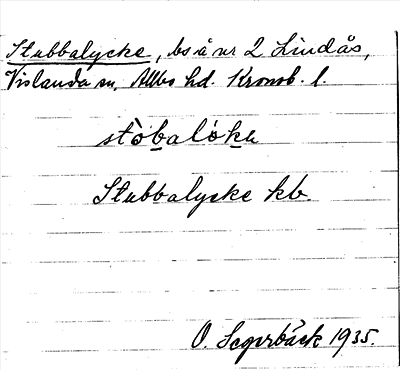 Stubbalycke, bs å nr 2 Lindås,
Vislanda sn, Allbo hd. Kronob. l.
stòbalók
Stubbalycke kb.
O. Segerbäck 1935.